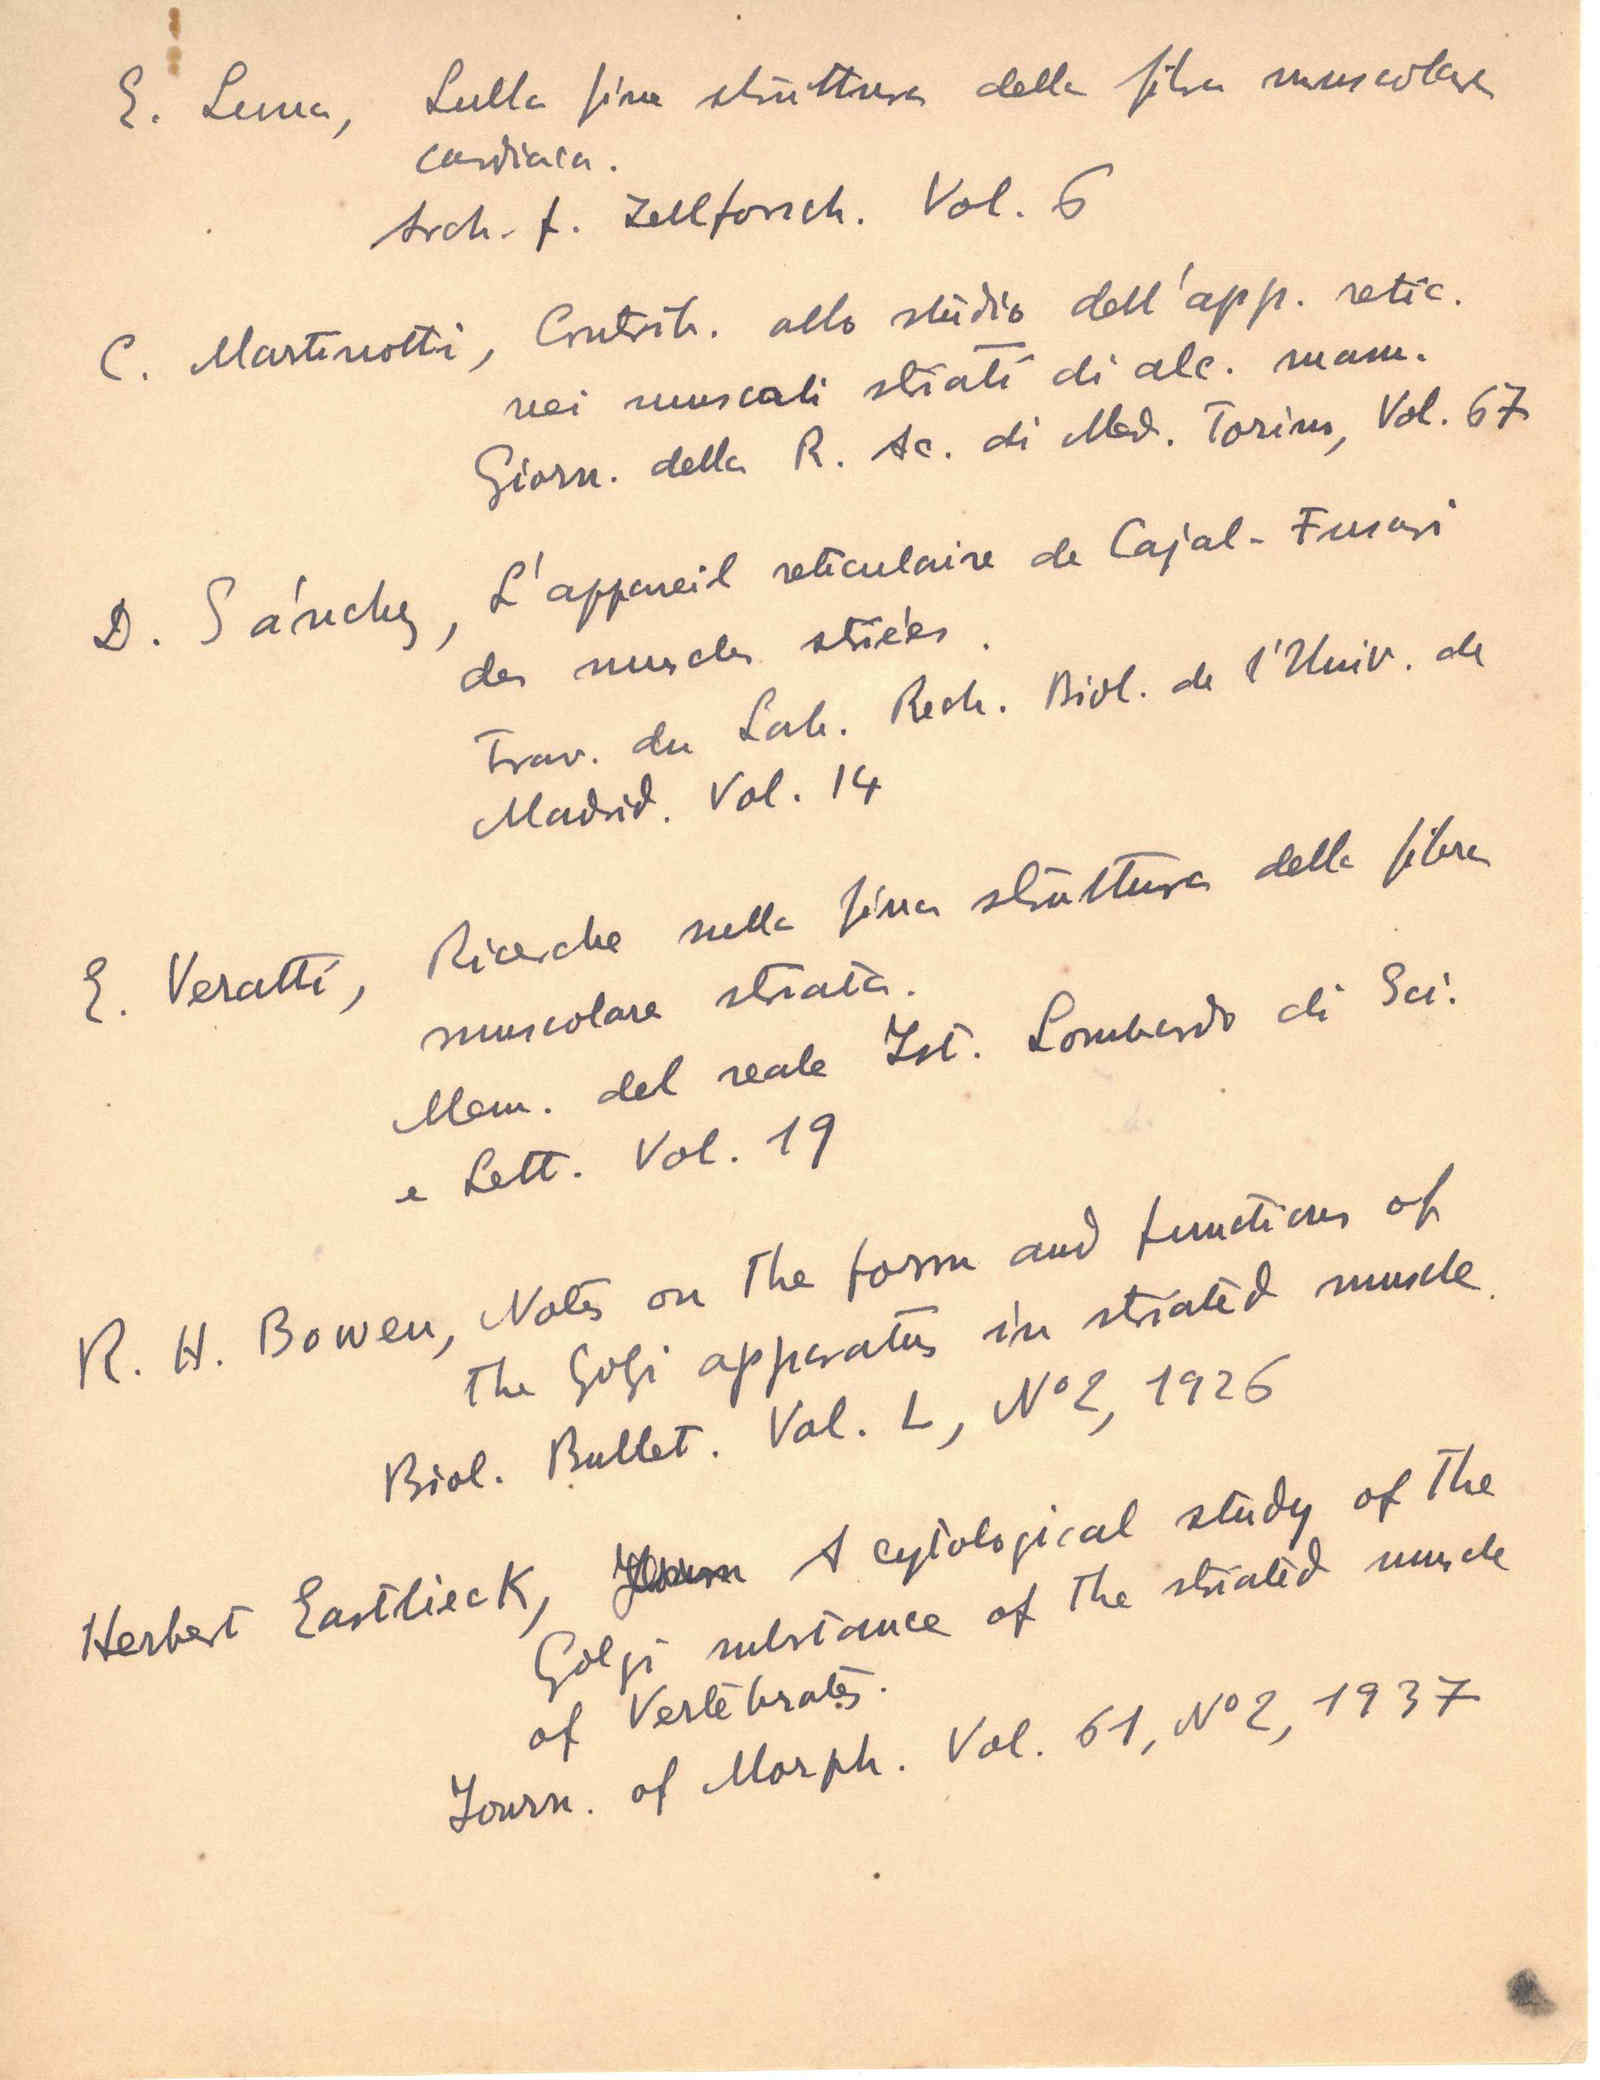 E. Luna, Sulla fine struttura della fibra muscolare
cardiaca.
Arch. f. Zellforsch. Vol. 6
C. Martinotti, Contrib. allo studio dell'app. retic.
nei muscoli striati di alc. mam.
Giorn. della R. Ac. di Med. Torino, Vol. 67
D. Sánchez, L'appareil reticulaire de Cajal-Fusari
des muscles striées.
Trav. du Lab. Rech. Biol. de l'Univ. de
Madrid. Vol. 14
E. Veratti, Ricerche sulla fina struttura della fibra
muscolare striata.
Mem. del reale Ist. Lombardo di Sci.
e Lett. Vol. 19
R. H. Bowen, Notes on the form and functions of
the Golgi apparatus in striated muscle.
Biol. Bullet. Vol. L, Nº2, 1926
Herbert Eastlieck, A cytological study of the
Golgi substance of the striated muscle
of Vertebrates.
Journ. of Morph. Vol. 61, Nº2, 1937